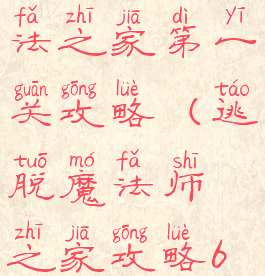 fǎ zhī jiā dì yī
法之家第一
guān gōng lüè táo
关攻略（逃
tuō mó fǎ shī
脱魔法师
zhī jiā gōng lüè
之家攻略6